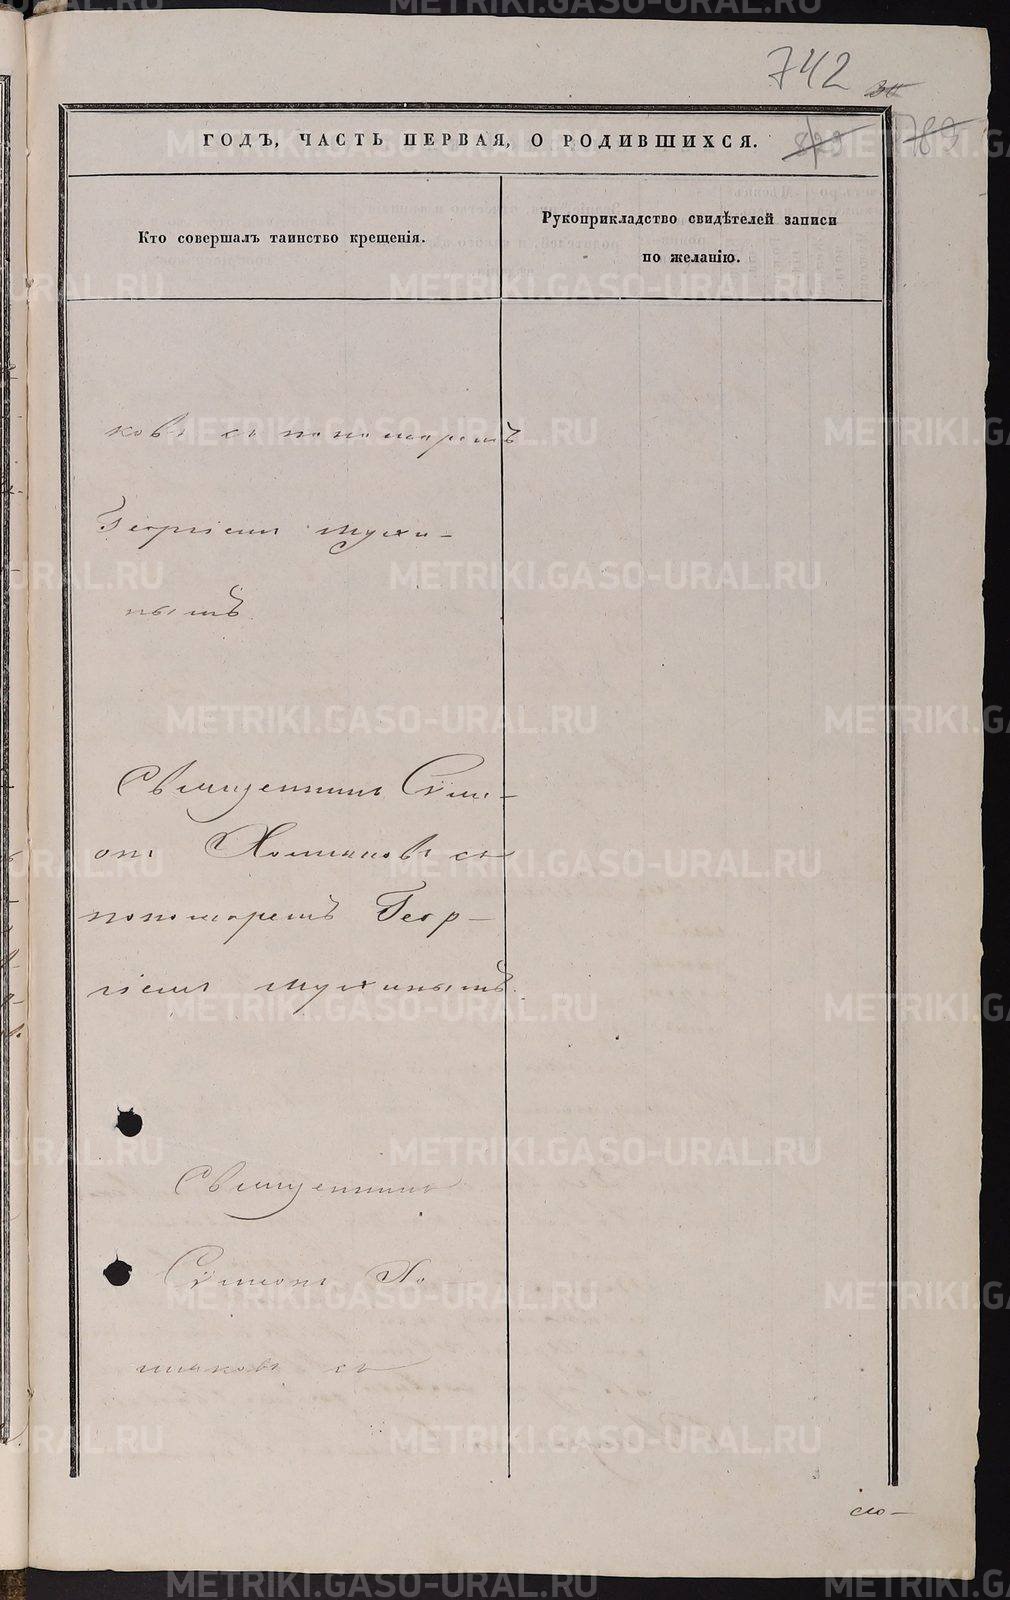 742
789
ГОДЪ, ЧАСТЬ ПЕРВАЯ, О РОДИВШИХСЯ.
Кто совершалъ таинство крещенія.
Рукоприкладство свидѣтелей записи
по желанію.
ковъ съ пономаремъ
Георгіемъ Мухи-
нымъ
Священникъ Сѵме-
онъ Хомяковъ съ
пономаремъ Геор-
гіемъ Мухинымъ.
Священникъ
Сѵмеонъ Хо
мяковъ съ
METRIKI.GASO-URAL.RU